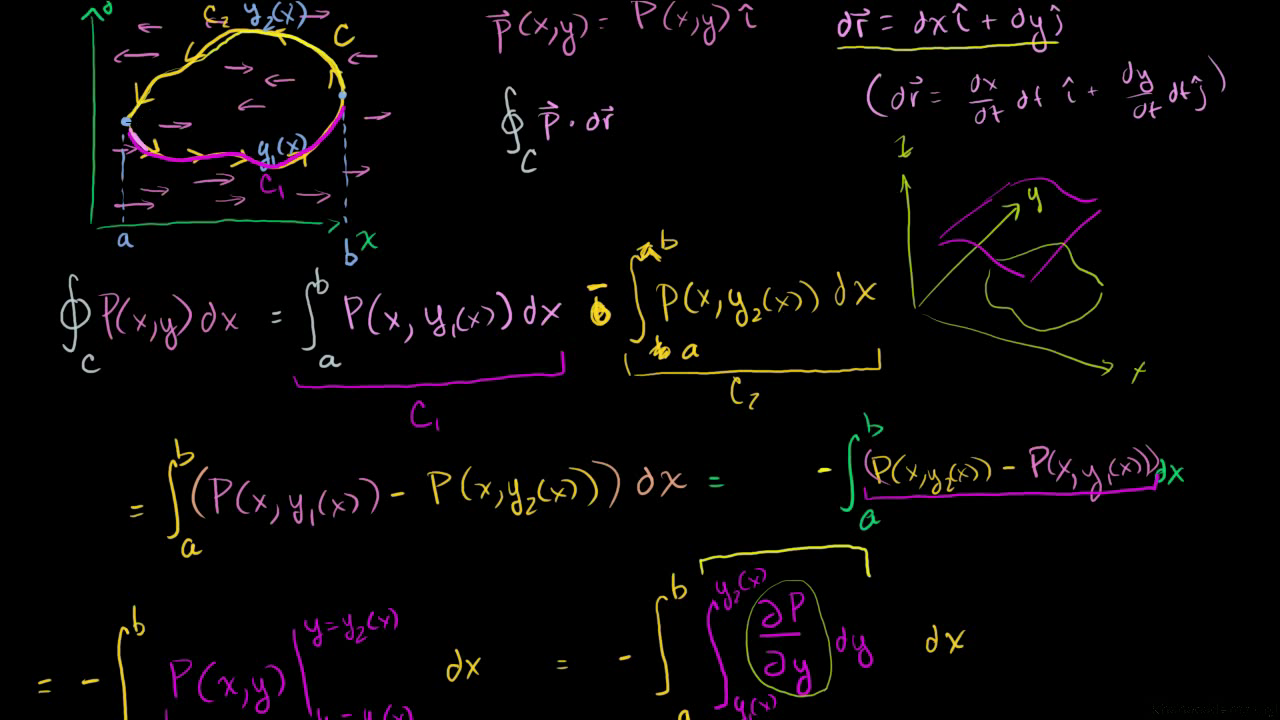 C₂ y₂(x)
C
y₁(x)
C₁
a
b
x
P⃗(x,y) = P(x,y) î
∮_C P⃗ · dr⃗
dr⃗ = dx î + dy ĵ
(dr⃗ = dx/dt dt î + dy/dt dt ĵ)
z
y
x
∮_C P(x,y) dx = ∫_a^b P(x, y₁(x)) dx - ∫_a^b P(x, y₂(x)) dx
C₁
C₂
= ∫_a^b (P(x, y₁(x)) - P(x, y₂(x))) dx = - ∫_a^b (P(x, y₂(x)) - P(x, y₁(x))) dx
= - ∫^b P(x,y) |^{y = y₂(x)} dx = - ∫_a^b ∫_{y₁(x)}^{y₂(x)} ∂P/∂y dy dx